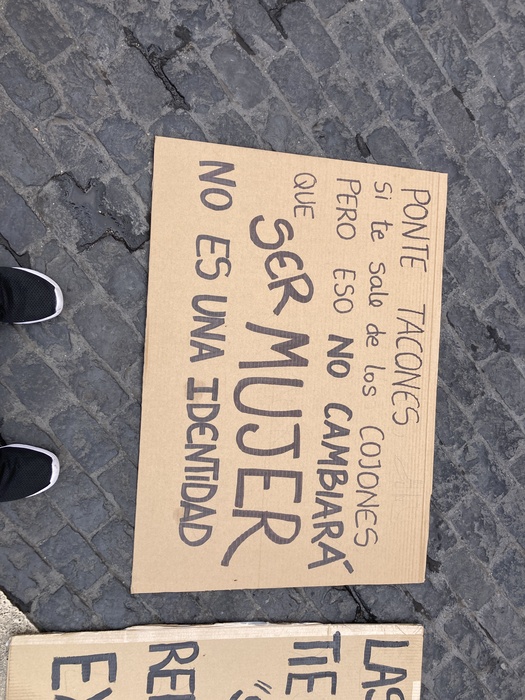 PONTE TACONES
si te sale de los COJONES
PERO ESO NO CAMBIARÁ
QUE
SER MUJER
NO ES UNA IDENTIDAD
LAS